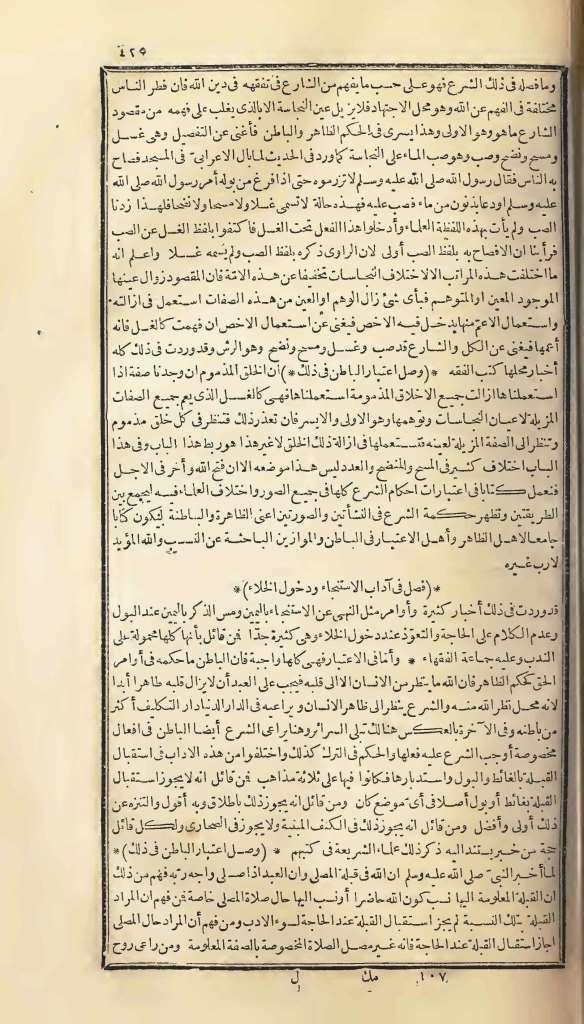 ٤٢٥
وما فصله فى ذلك الشرع فهو على حسب ما يفهم من الشارع فى تفقهه فى دين الله فان فطر الناس
مختلفة فى الفهم عن الله وهو محل الاجتهاد فلا يزيل عين النجاسة الا بالذى يغلب على فهمه من مقصود
الشارع ما هو وهو الاولى وهذا يسرى فى الحكم الظاهر والباطن فأغنى عن التفصيل وهى غسل
ومسح ونضح وصب وهو صب الماء على النجاسة كما ورد فى الحديث لما بال الاعرابى فى المسجد فصاح
به الناس فقال رسول الله صلى الله عليه وسلم لا تزرموه حتى اذا فرغ من بوله أمر رسول الله صلى الله
عليه وسلم او دعا بذنوب من ماء فصب عليه فهذه حالة لا تسمى غسلا ولا مسحا ولا نضحا فلهذا زدنا
الصب ولم يأت بهذه اللفظة العلماء وأدخلوا هذا الفعل تحت الغسل فاكتفوا بلفظ الغسل عن الصب
فرأينا ان الافصاح به بلفظ الصب أولى لان الراوى ذكره بلفظ الصب ولم يسمه غسلا واعلم انه
ما اختلفت هذه المراتب الا لاختلاف النجاسات تخفيفا عن هذه الامّة فان المقصود زوال عينها
الموجود المعين او المتوهم فبأى شئ زال الوهم او العين من هذه الصفات استعمل فى ازالته
واستعمال الاعمّ منها يدخل فيه الاخص فيغنى عن استعمال الاخص ان فهمت كالغسل فانه
أعمها فيغنى عن الكل والشارع قد صب وغسل ومسح ونضح وهو الرش وقد وردت فى ذلك كله
أخبار محلها كتب الفقه *(وصل اعتبار الباطن فى ذلك)* ان الخلق المذموم ان وجدنا صفة اذا
استعملناها ازالت جميع الاخلاق المذمومة استعملناها فهى كالغسل الذى يعم جميع الصفات
المزيلة لاعيان النجاسات وتوهمها وهو الاولى والايسر فان تعذر ذلك فتنظر فى كل خلق مذموم
وتنظر الى الصفة المزيلة لعينه فتستعملها فى ازالة ذلك الخلق لا غير هذا هو ربط هذا الباب وفى هذا
الباب اختلاف كثير فى المسح والنضح والعدد ليس هذا موضعه الا ان فتح الله وأخر فى الاجل
فنعمل كتابا فى اعتبارات احكام الشرع كلها فى جميع الصور واختلاف العلماء فيه ليجمع بين
الطريقتين وتظهر حكمة الشرع فى النشأتين والصورتين اعنى الظاهرة والباطنة ليكون كتابا
جامعا لاهل الظاهر وأهل الاعتبار فى الباطن والموازين الباحثة عن النسب والله المؤيد
لا رب غيره
*(فصل فى آداب الاستنجاء ودخول الخلاء)*
قد وردت فى ذلك أخبار كثيرة وأوامر مثل النهى عن الاستنجاء باليمين ومس الذكر باليمين عند البول
وعدم الكلام على الحاجة والتعوّذ عند دخول الخلاء وهى كثيرة جدّا فمن قائل بأنها كلها محمولة على
الندب وعليه جماعة الفقهاء * وأما فى الاعتبار فهى كلها واجبة فان الباطن ما حكمه فى أوامر
الحق كحكم الظاهر فان الله ما ينظر من الانسان الا الى قلبه فيجب على العبد أن لا يزال قلبه طاهرا أبدا
لانه محل نظر الله منه والشرع ينظر الى ظاهر الانسان ويراعيه فى الدار الدنيا دار التكليف أكثر
من باطنه وفى الآخرة بالعكس هنالك تبلى السرائر وهنا يراعى الشرع أيضا الباطن فى افعال
مخصوصة أوجب الشرع عليه فعلها والحكم فى الترك كذلك واختلفوا من هذه الاداب فى استقبال
القبلة بالغائط والبول واستدبارها فكانوا فيها على ثلاثة مذاهب فمن قائل انه لا يجوز استقبال
القبلة بغائط أو بول أصلا فى أى موضع كان ومن قائل انه يجوز ذلك باطلاق وبه أقول والتنزه عن
ذلك أولى وأفضل ومن قائل انه يجوز ذلك فى الكنف المبنية ولا يجوز فى الصحارى ولكل قائل
حجة من خبر يستند اليه ذكر ذلك علماء الشريعة فى كتبهم *(وصل اعتبار الباطن فى ذلك)*
لما أخبر النبىّ صلى الله عليه وسلم ان الله فى قبلة المصلى وان العبد اذا صلى واجه ربه فمن فهم من ذلك
ان القبلة المعلومة اليها نسب كون الله حاضرا أو نسب اليها حال صلاة المصلى خاصة فمن فهم ان المراد
القبلة بتلك النسبة لم يجز استقبال القبلة عند الحاجة لسوء الادب ومن فهم أن المراد حال المصلى
اجاز استقبال القبلة عند الحاجة فانه غير مصل الصلاة المخصوصة بالصفة المعلومة ومن راعى روح
١٠٧ مك ل